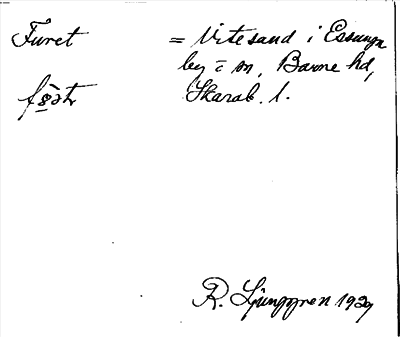 Furet = Vitesand i Essunga
by o sn, Barne hd,
Skarab. l.
R. Ljunggren 1929